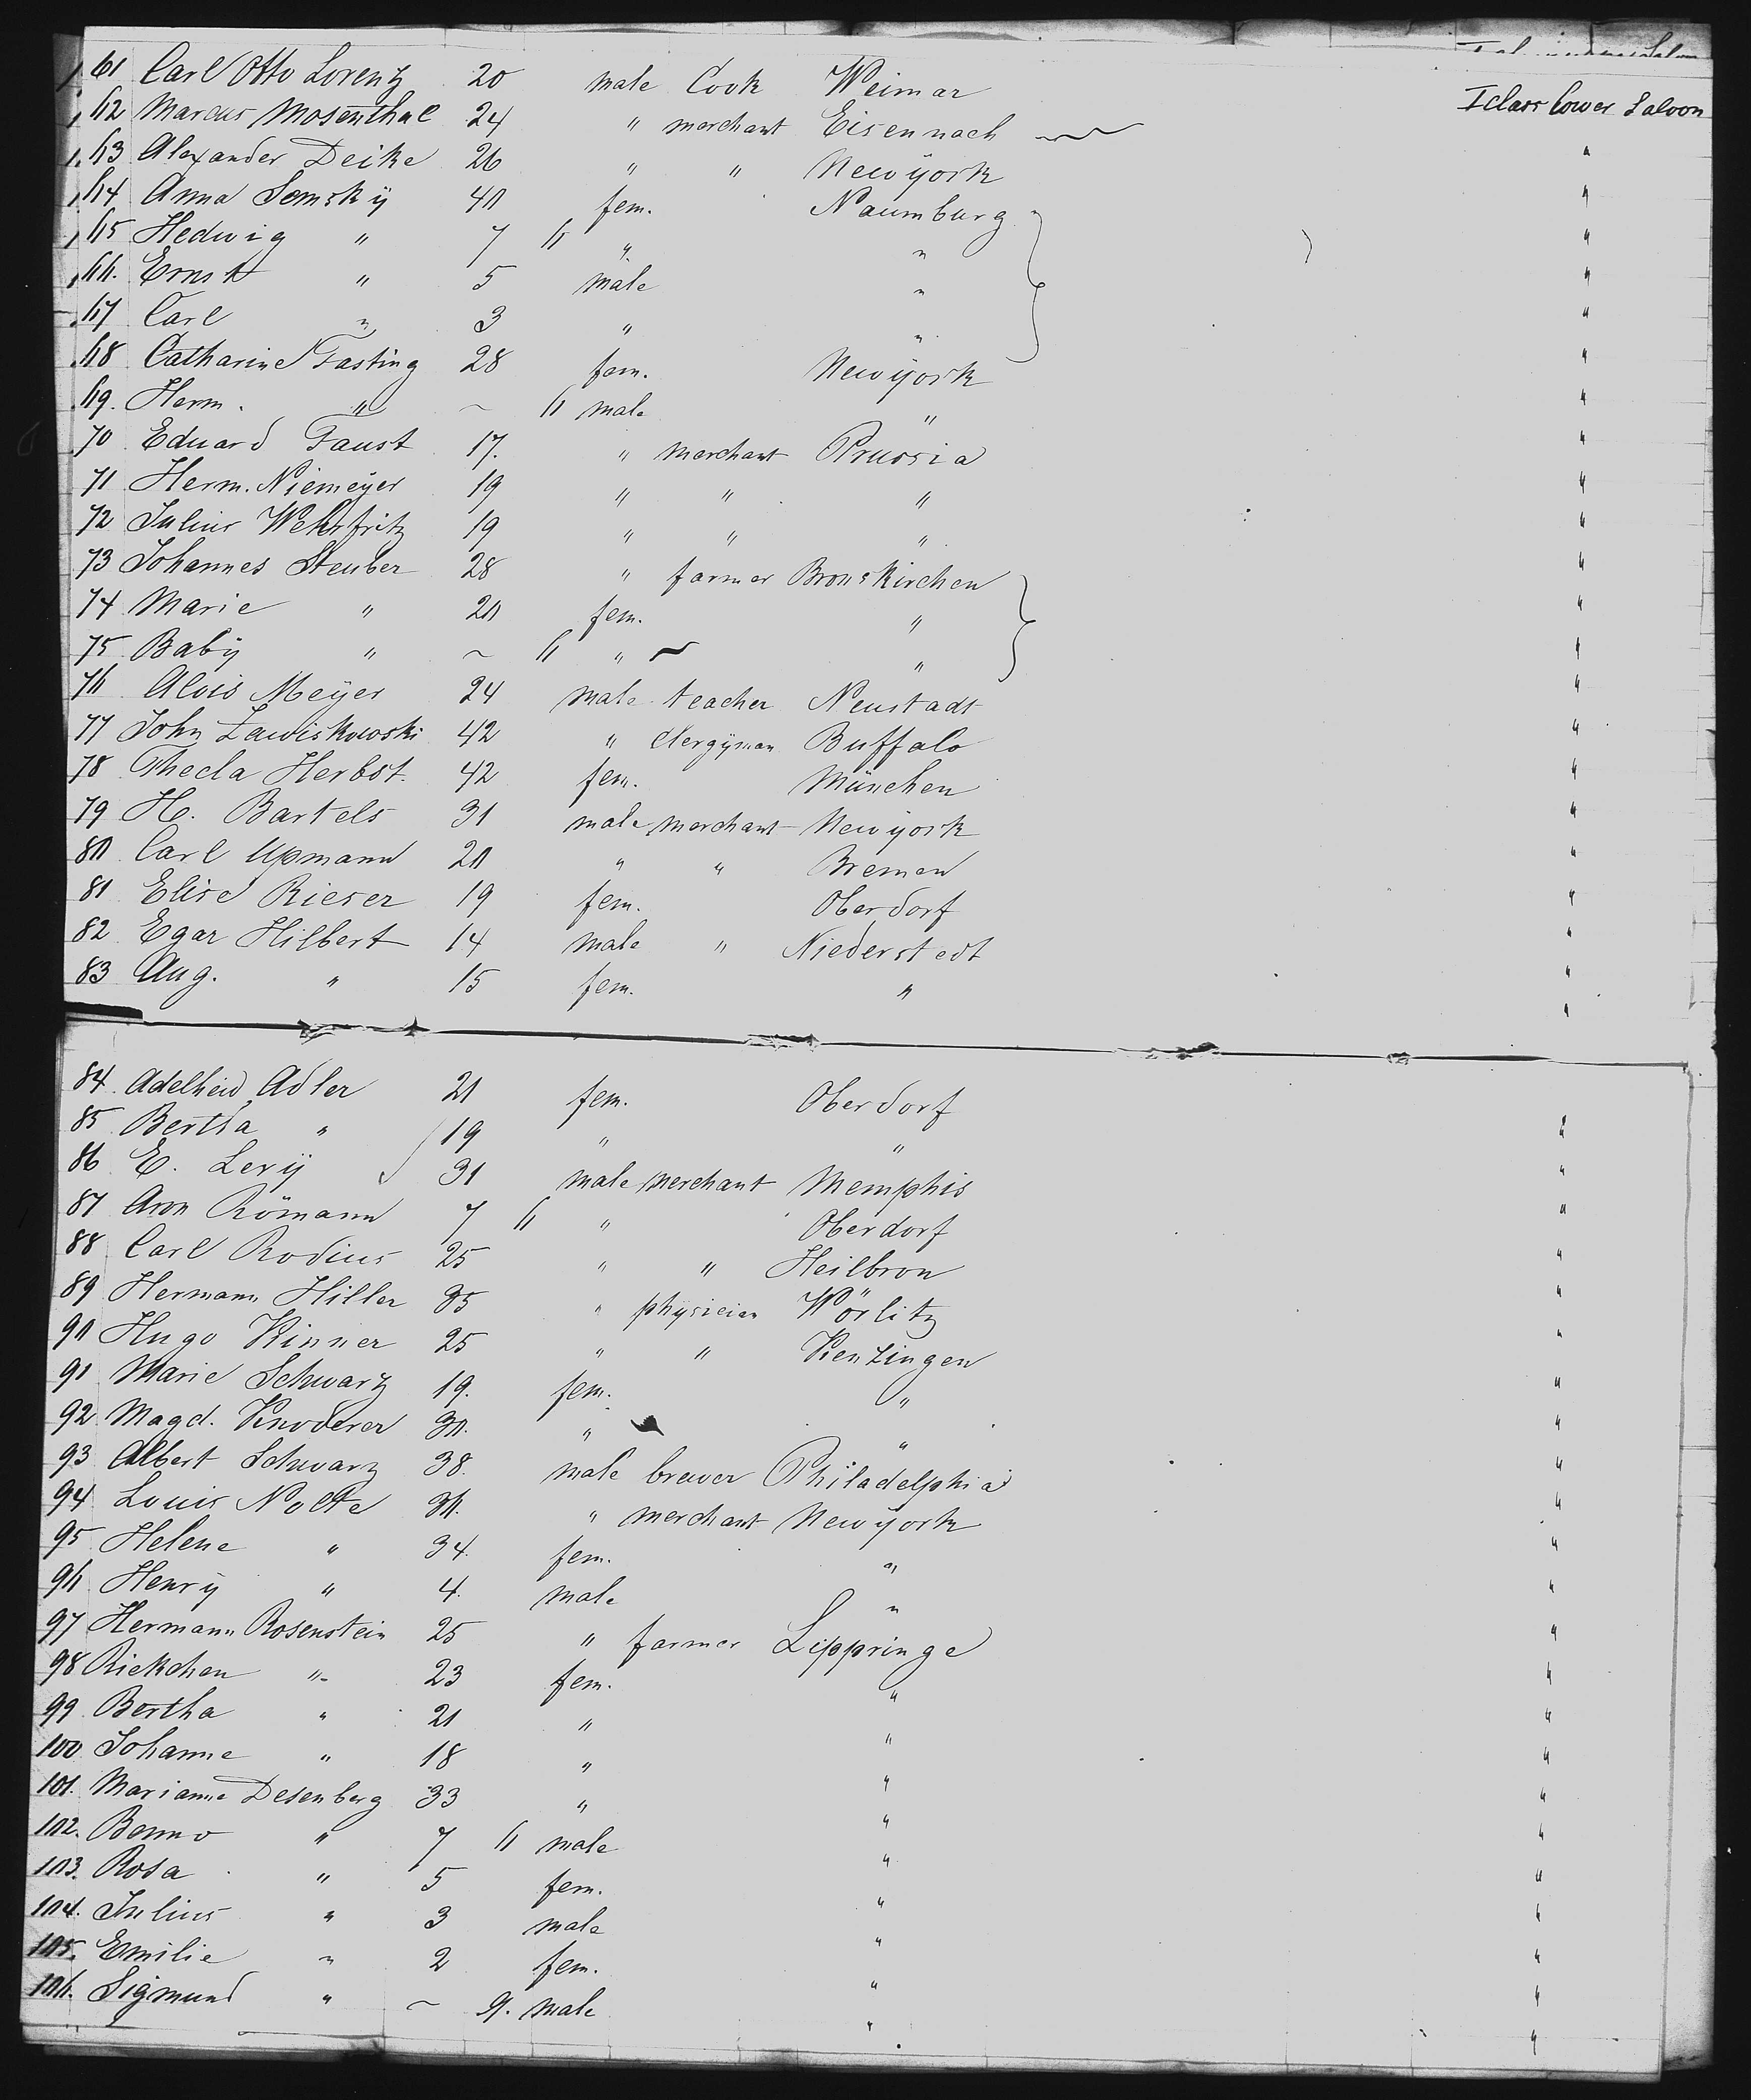 61 Carl Otto Lorentz 20 male Cook Weimar I class lower Saloon
62 Marcus Mosenthal 24 " merchant Eisennach "
63 Alexander Deike 26 " " Newyork "
64 Anna Semsky 40 fem. Naumburg "
65 Hedwig " 7 6 " " "
66. Ernst " 5 male " "
67 Carl " 3 " " "
68 Catharine Fasting 28 fem. Newyork "
69. Herm. " ~ 6 male " "
70 Eduard Faust 17. " merchant Prussia "
71 Herm. Niemeyer 19 " " " "
72 Julius Wehrfritz 19 " " " "
73 Johannes Steuber 28 " farmer Bronskirchen "
74 Marie " 20 fem. " "
75 Baby " ~ 6 " ~ " "
76 Alois Meyer 24 male teacher Neustadt "
77 John Zawiskowski 42 " Clergyman Buffalo "
78 Thecla Herbst. 42 fem. München "
79 H. Bartels 31 male merchant Newyork "
80 Carl Upmann 20 " " Bremen "
81 Elise Rieser 19 fem. Oberdorf "
82 Egar Hilbert 14 male " Niederstedt "
83 Aug. " 15 fem. " "
84 Adelheid Adler 21 fem. Oberdorf "
85 Bertha " 19 " " "
86 E. Levy 31 male merchant Memphis "
87 Aron Römann 7 6 " Oberdorf "
88 Carl Rodius 25 " " Heilbron "
89 Hermann Hiller 35 " physician Wörlitz "
90 Hugo Kinner 25 " " Kenzingen "
91 Marie Schwartz 19. fem. " "
92 Magd. Knoderer 30. " " "
93 Albert Schwarz 38. male brewer Philadelphia "
94 Louis Nolte 36. " merchant Newyork "
95 Helene " 34. fem. " "
96 Henry " 4. male " "
97 Hermann Rosenstein 25 " farmer Lippringe "
98 Riekchen " 23 fem. " "
99 Bertha " 21 " " "
100 Johanne " 18 " " "
101. Marianne Desenberg 33 " " "
102. Benno " 7 6 male " "
103. Rosa " 5 fem. " "
104. Julius " 3 male " "
105. Emilie " 2 fem. " "
106. Sigmund " ~ 9. male " "